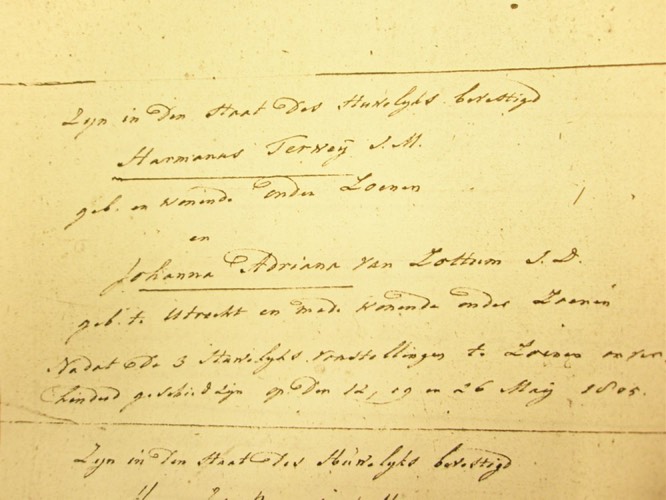 Zijn in den Staat des Huwelyks bevestigd
Harmanus Terweij J.M.
geb. en wonende onder Zoenen
en
Johanna Adriana van Zottum J.D.
geb. te Utrecht en mede wonende onder Zoenen
Nadat de 3 Huwelyks voorstellingen te Zoenen onver
hinderd geschied zijn op den 12, 19 en 26 Maij 1805.
Zijn in den Staat des Huwelyks bevestigd